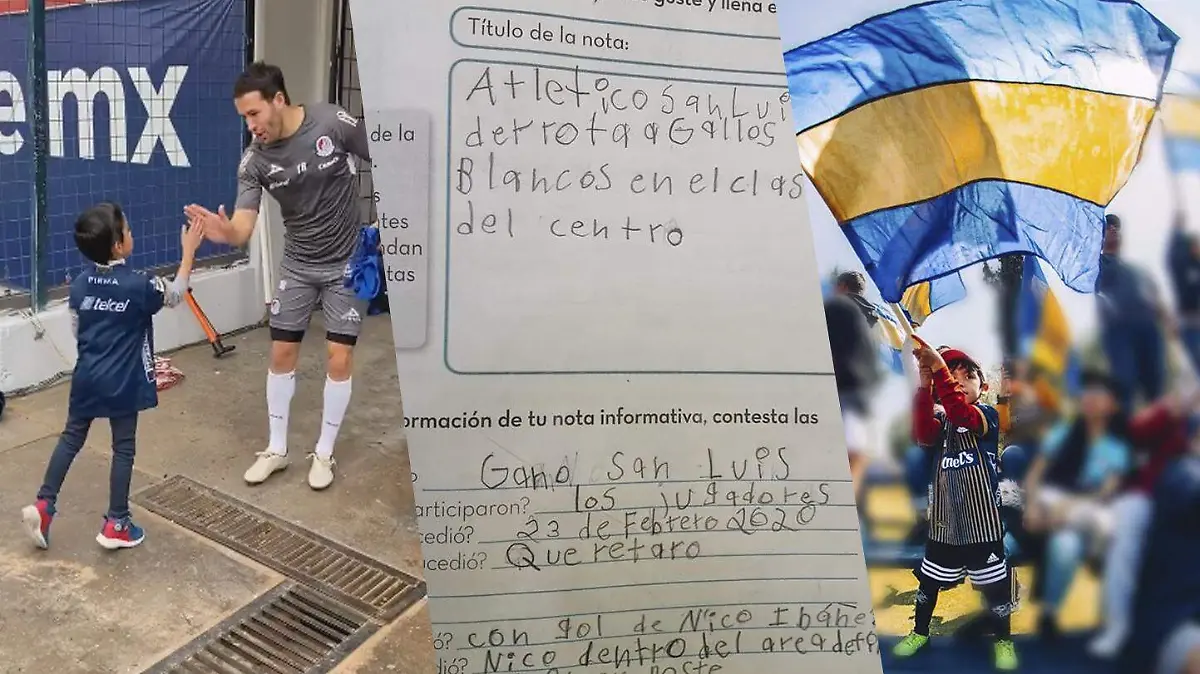 emx
FIRMA
telcel
TR
Canel's
y llena e
Título de la nota:
Atlético San Lui
derrota a Gallos
Blancos en el clas
del centro
de la
s
tes
ndan
tas
ormación de tu nota informativa, contesta las
Gano San Luis
articiparon? los jugadores
cedió? 23 de Febrero 2020
ucedió? Queretaro
ó? con gol de Nico Ibáñe
dió? Nico dentro del area
poste
nel's